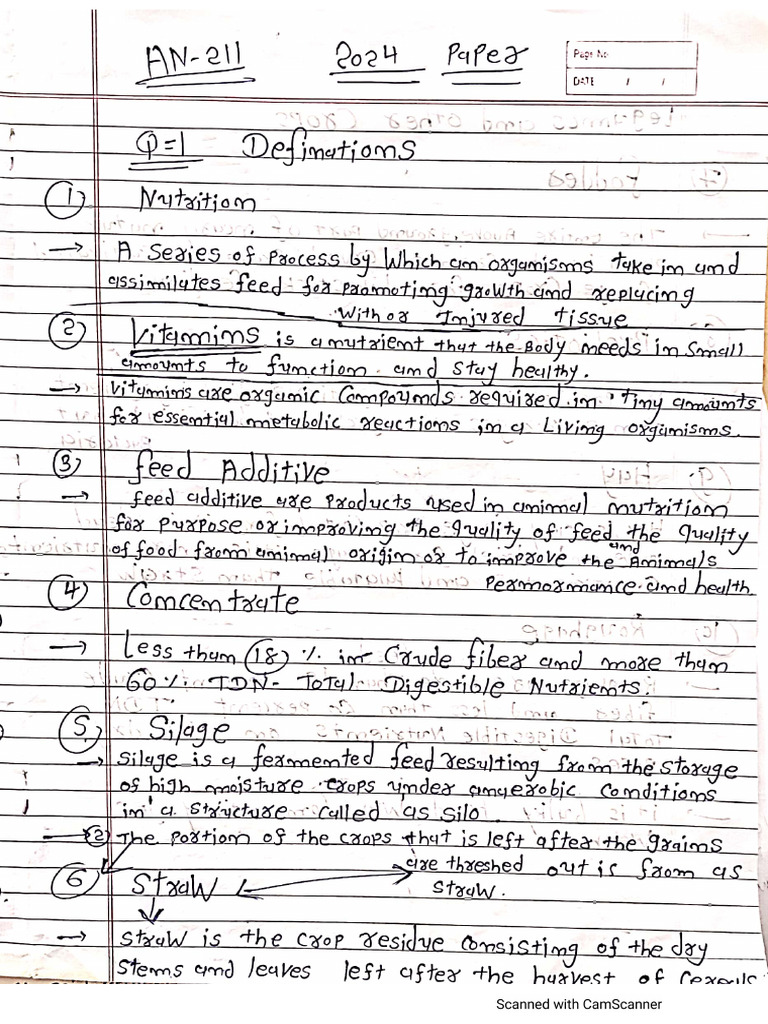 AN-211 2024 Paper
Page No
DATE / /
Q=1 Definations
1) Nutrition
→ A Series of Process by Which an organisms take in and
assimilates feed for promoting growth and replacing
With or Injured tissue
2) Vitamins is a nutrient that the Body needs in Small
amounts to function and stay healthy.
→ Vitamins are organic Compounds required in tiny amounts
for essential metabolic reactions in a Living organisms.
3) feed Additive
→ feed additive are Products used in animal nutrition
for purpose or improving the quality of feed the quality
of food from animal origin or to improve the and Animals
Permormance and health
4) Concentrate
→ Less than 18 % in Crude fiber and more than
60 % TDN- Total Digestible Nutrients.
5. Silage
→ Silage is a fermented feed resulting from the storage
of high moisture crops under anaerobic conditions
in a structure called as silo.
→ 2) The portion of the crops that is left after the grains
are threshed out is from as
6) Straw straw.
→ Straw is the crop residue consisting of the dry
stems and leaves left after the harvest of Cereals
Scanned with CamScanner